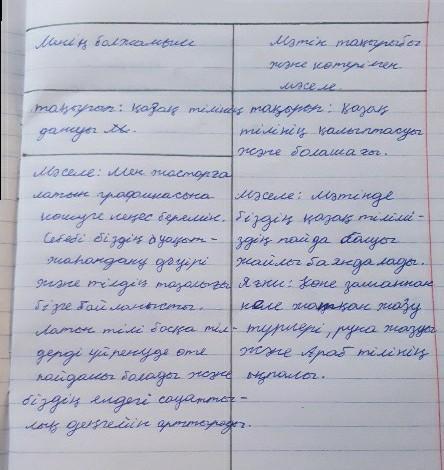 Менің болжамым
Мәтін тақырыбы
және көтерілген
мәселе.
тақырып: қазақ тілінің
дамуы
Мәселе: Мен жастарға
латын графикасына
көшуге кеңес беремін.
Себебі біздің уақыт-
жаһандану дәуірі
және тілдің тазалығы
бізге байланысты.
Латын тілі басқа тіл-
дерді үйренуде өте
пайдасы болады және
біздің елдегі сауатты-
лық деңгейін арттырады.
тақырып: Қазақ
тілінің қалыптасуы
және болашағы.
Мәселе: Мәтінде
біздің қазақ тілімі-
здің пайда болуы
жайлы баяндалады.
Яғни: Көне заманнан
келе жатқан жазу
түрлері, руна жазуы
және Араб тілінің
ықпалы.